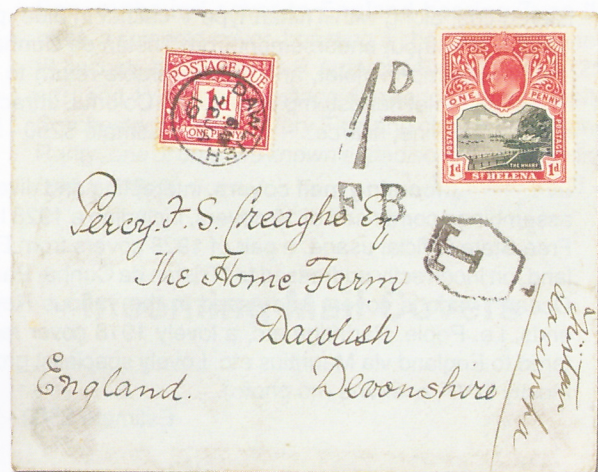 POSTAGE DUE
1d
ONE PENNY
DAWLISH
1D
F.B
ONE PENNY
POSTAGE POSTAGE
THE WHARF
1d ST HELENA 1d
T
Percy F. S. Creaghe Esq
The Home Farm
Dawlish
England. Devonshire
Tristan
da cunha